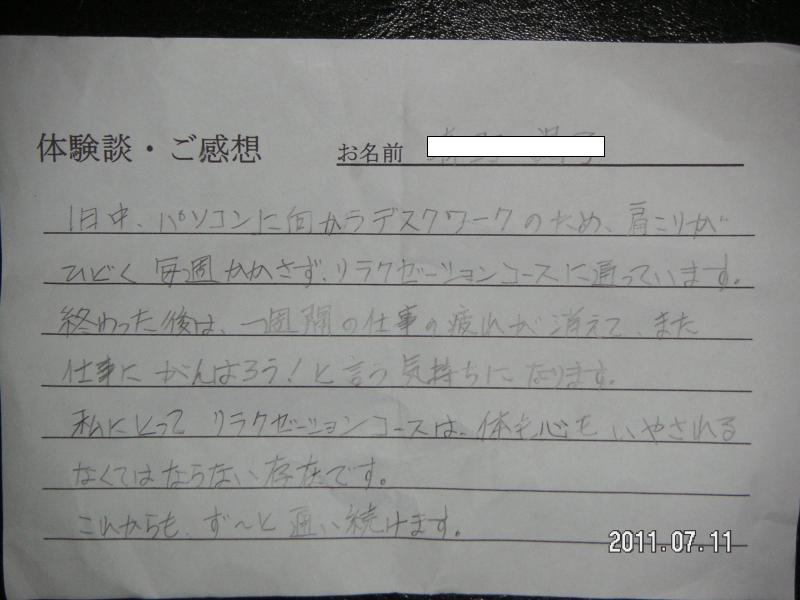 体験談・ご感想 お名前
1日中、パソコンに向かうデスクワークのため、肩こりが
ひどく 毎週かかさず、リラクゼーションコースに通っています。
終わった後は、一週間の仕事の疲れが消えて、また
仕事にがんばろう！と言う気持ちになります。
私にとって リラクゼーションコースは、体も心もいやされる
なくてはならない存在です。
これからも、ず〜と通い続けます。
2011.07.11